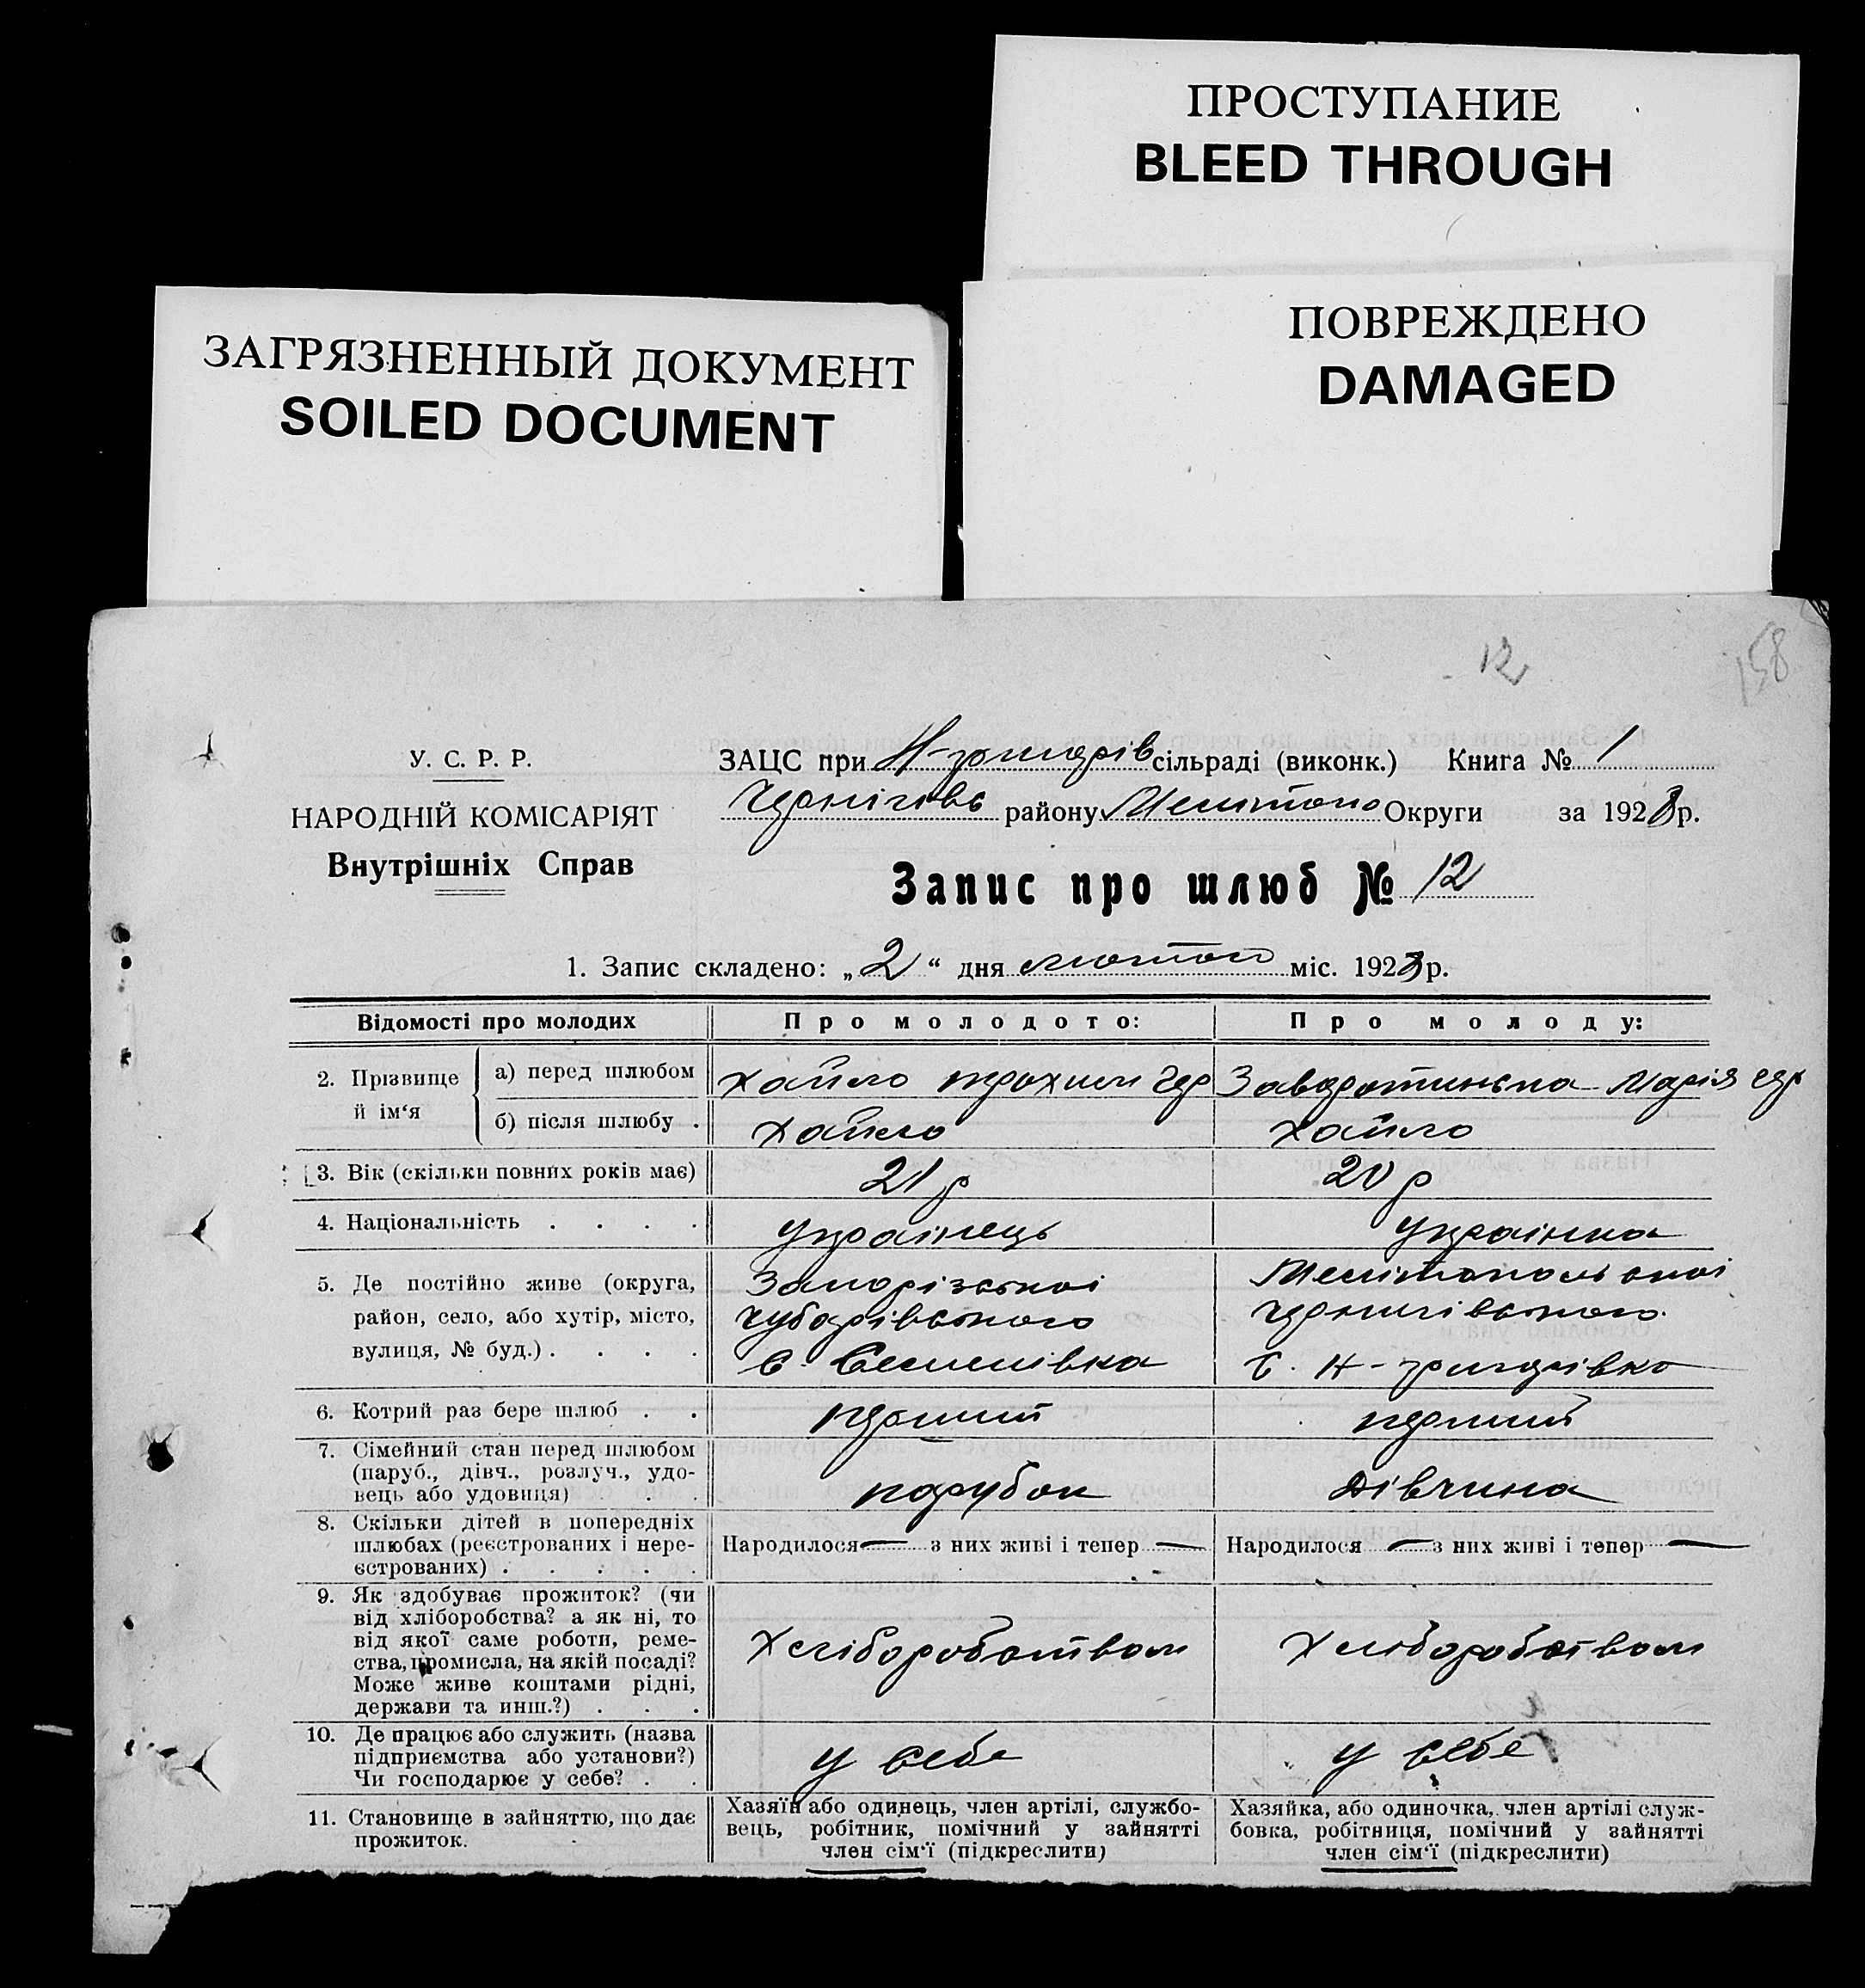 ПРОСТУПАНИЕ
BLEED THROUGH
ЗАГРЯЗНЕННЫЙ ДОКУМЕНТ
SOILED DOCUMENT
ПОВРЕЖДЕНО
DAMAGED
12
158
У. С. Р. Р.
НАРОДНІЙ КОМІСАРІЯТ
Внутрішніх Справ
ЗАЦС при Н-григорів сільраді (виконк.) Книга № 1
Чернігівс району Мелітопо Округи за 1928 р.
Запис про шлюб № 12
1. Запис складено: „2“ дня лютого міс. 1928 р.
Відомості про молодих
Про молодого:
Про молоду:
2. Прізвище й ім‘я
а) перед шлюбом
Хайло Трохим
Заворотинська Марія
б) після шлюбу .
Хайло
Хайло
3. Вік (скільки повних років має)
21 р
20 р
4. Національність . . . .
українець
українка
5. Де постійно живе (округа,
район, село, або хутір, місто,
вулиця, № буд.) . . . .
Запорізської
Чубарівського
с. Семенівка
Мелітопольської
Чернигівського
с. Н-григорівка
6. Котрий раз бере шлюб . .
перший
перший
7. Сімейний стан перед шлюбом
(паруб., дівч., розлуч., удо-
вець або удовиця) . .
парубок
дівчина
8. Скільки дітей в попередніх
шлюбах (реєстрованих і нере-
єстрованих) . . . . .
Народилося — з них живі і тепер —
Народилося — з них живі і тепер —
9. Як здобуває прожиток? (чи
від хліборобства? а як ні, то
від якої саме роботи, реме-
ства, промисла, на якій посаді?
Може живе коштами рідні,
держави та инш.?) . . .
Хліборобством
Хліборобством
10. Де працює або служить (назва
підприємства або установи?)
Чи господарює у себе? . .
у себе
у себе
11. Становище в зайняттю, що дає
прожиток.
Хазяїн або одинець, член артілі, службо-
вець, робітник, помічний у зайнятті
член сім‘ї (підкреслити)
Хазяйка, або одиночка, член артілі служ-
бовка, робітниця, помічний у зайнятті
член сім‘ї (підкреслити)